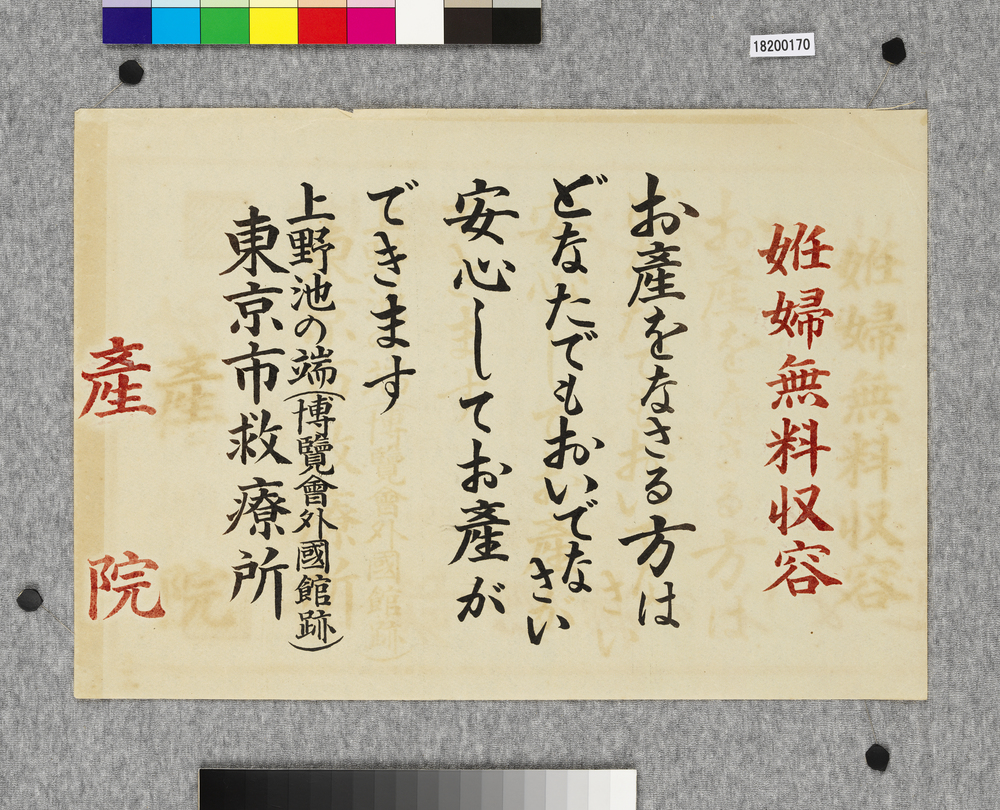 姙婦無料収容
お産をなさる方は
どなたでもおいでな
さい
安心してお産が
できます
上野池の端(博覧會外國館跡)
東京市救療所
産院
18200170